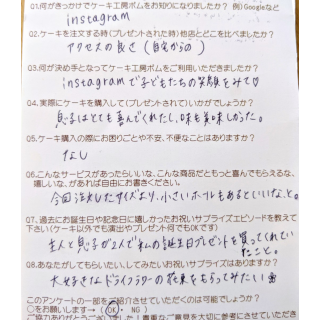 Q1.何がきっかけでケーキ工房ボムをお知りになりましたか? 例)Googleなど
instagram
Q2.ケーキを注文する時(プレゼントされた時)他店とどこを比べましたか?
アクセスの良さ(自宅からの)
Q3.何が決め手となってケーキ工房ボムをご利用いただきましたか?
instagramで子どもたちの笑顔をみて♡
Q4.実際にケーキを購入して(プレゼントされて)いかがでしょうか?
息子はとても喜んでくれたし、味も美味しかった。
Q5.ケーキ購入の際にお困りごとや不安、不便なことはありますか?
なし
Q6.こんなサービスがあったらいいな、こんな商品だともっと喜んでもらえるな、
嬉しいな、があれば自由にお書きください。
今回注文したサイズより、小さいホールもあるといいな、と。
Q7.過去にお誕生日や記念日に嬉しかったお祝いサプライズエピソードを教えて
下さい(ケーキ以外でも演出やプレゼント何でもOKです)
主人と息子が2人で私の誕生日プレゼントを買ってくれていたこと。
Q8.あなたがしてもらいたい、してみたいお祝いサプライズはありますか?
大好きなドライフラワーの花束をもらってみたい
このアンケートの一部をご紹介させていただくのは可能でしょうか?
○をお願いします→(OK・NG)
ご協力ありがとうございました!貴重なご意見を大切に参考にさせていただき